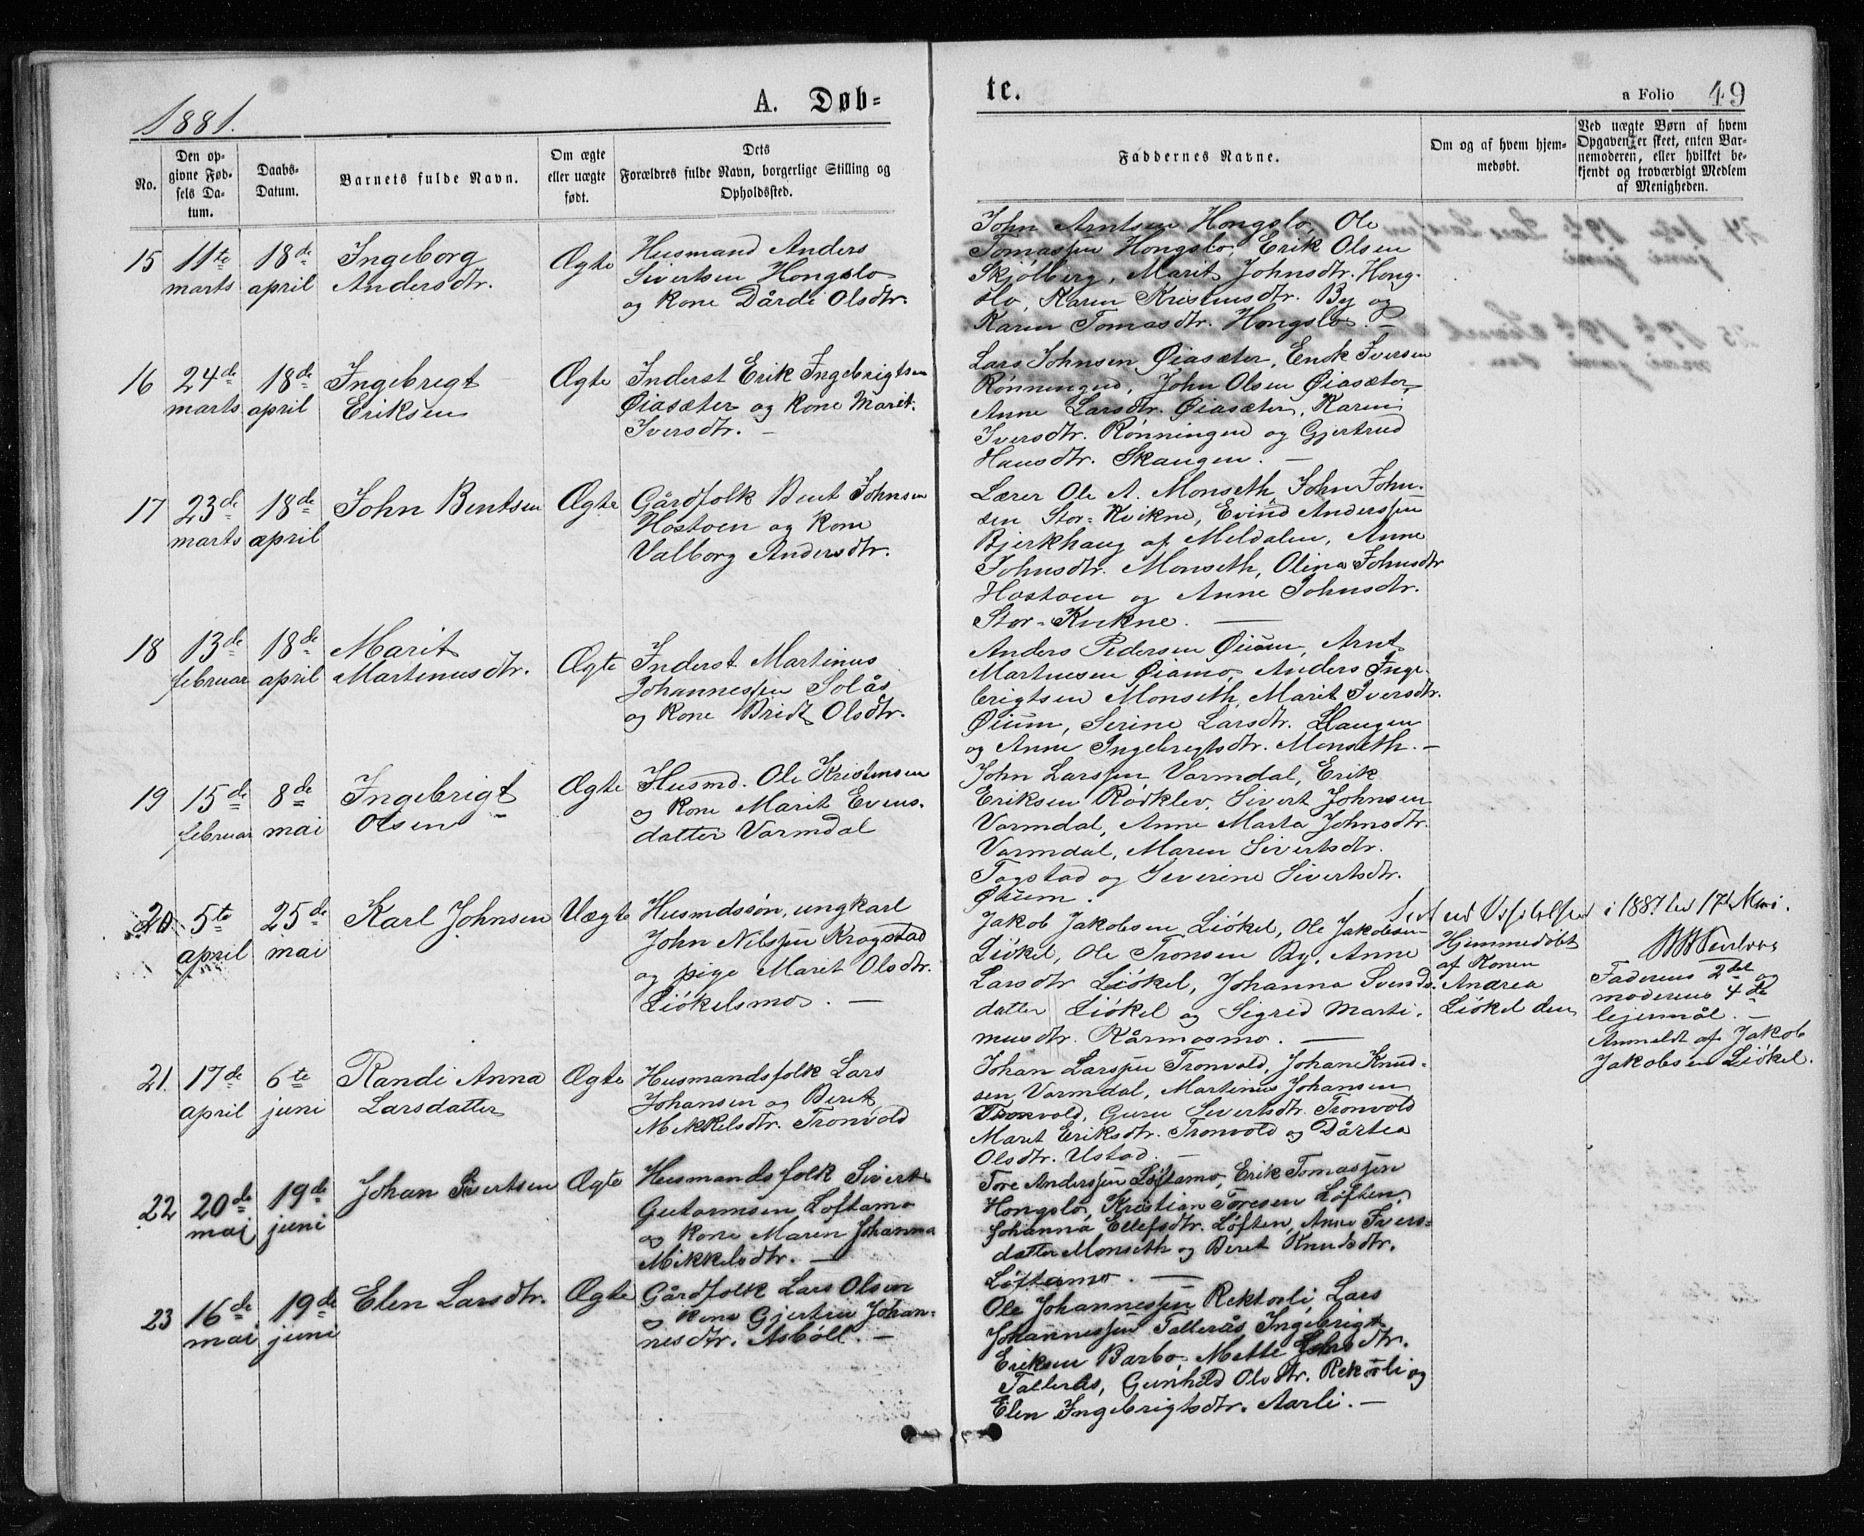 1881.
A. Døb=
te.
a Folio 49
No.
Den op-
givne Fød-
sels Da-
tum.
Daabs-
Datum.
Barnets fulde Navn.
Om ægte
eller uægte
født.
Dets
Forældres fulde Navn, borgerlige Stilling og
Opholdssted.
Faddernes Navne.
Om og af hvem hjem-
medøbt.
Ved uægte Børn af hvem
Opgaven er skeet, enten Bar-
nemoderen, eller hvilket be-
kjendt og troværdigt Medlem
af Menigheden.
15 11te marts
18de april
Ingeborg
Andersdtr.
Ægte
Husmand Anders
Sivertsen Hongslo
og kone Dårdi Olsdtr.
John Arntsen Hongslo, Ole
Tomassen Hongslo, Erik Olsen
Skjølberg, Marit Johnsdtr. Hong-
slo, Karen Kristensdtr. By og
Karen Tomasdtr. Hongslo. —
16 24de marts
18de april
Ingebrigt
Eriksen
Ægte
Inderst Erik Ingebrigtsen
Øiasæter og kone Marit
Iversdtr. —
Lars Johnsen Øiasæter, Erik Iversen
Rønningen, John Olsen Øiasæter,
Anne Larsdtr. Øiasæter, Karen
Iversdtr. Rønningen og Gjertrud
Hansdtr. Skaugen. —
17 23de marts
18de april
John Bentsen
Ægte
Gårdfolk Bent Johnsen
Hostoen og kone
Valborg Andersdtr.
Lærer Ole A. Monseth, John John-
sen Stor-Kvikne, Evind Anderssen
Bjerkhaug af Meldalen, Anne
Johnsdtr. Monseth, Olina Johnsdtr
Hostoen og Anne Johnsdtr.
Stor-Kvikne. —
18 13de februar
18de april
Marit
Martinusdtr.
Ægte
Inderst Martinus
Johannessen Solås
og kone Bridt Olsdtr.
Anders Pedersen Øium, Arnt
Martinesen Øiamo, Anders Inge-
brigtsen Monseth, Marit Iversdtr.
Øium, Serine Larsdtr. Haugen
og Anne Ingebrigtsdtr. Monseth. —
19 15de februar
8de mai
Ingebrigt
Olsen
Ægte
Husmd. Ole Kristensen
og kone Marit Evens-
datter Varmdal
John Larssen Varmdal, Erik
Eriksen Rødklev, Sivert Johnsen
Varmdal, Anne Marta Johnsdtr.
Varmdal, Maren Sivertsdtr.
Togstad og Severine Sivertsdtr.
Øium.
20 5te april
25de mai
Karl Johnsen
Uægte
Husmdssøn, ungkarl
John Nilssen Krogstad
og pige Marit Olsdtr.
Liökelsmo. —
Jakob Jakobsen Liökel, Ole Jakobsen
Liökel, Ole Tronsen By, Anne
Larsdtr Liökel, Johanna Svends-
datter Liökel og Sigrid Marti-
nusdtr. Kårmosmo. —
Hjemmedøbt
af Konen
Andrea
Liökel den
i 1881 den 17de Mai.
Faderens 2det og
moderens 4de
lejermål. —
Anmeldt af Jakob
Jakobsen Liökel.
21. 17de april
6te juni
Randi Anna
Larsdatter
Ægte
Husmandsfolk Lars
Johansen og Beret
Mikkelsdtr. Tronvold
Johan Larssen Tronvold, Johan Knud-
sen Varmdal, Martinus Johansen
Tronvold, Guru Sivertsdtr. Tronvold
Maret Eriksdtr. Tronvold og Dårtea
Olsdtr. Ustad. —
22 20de mai
19de juni
Johan Sivertsen
Ægte
Husmandsfolk Sivert
Gutormsen Løftamo
og kone Maren Johanna
Mikkelsdtr. —
Tore Anderssen Løftamo, Erik Tomassen
Hongslo, Kristian Toresen Løften,
Johanna Ellefsdtr. Løften, Anne Ivers-
datter Monseth og Beret Knudsdtr.
Løftamo. —
23 16de mai
19de juni
Elen Larsdtr.
Ægte
Gårdfolk Lars Olsen
og kone Gjertru Johan-
nesdtr. Asböll. —
Ole Johannessen Rektorli, Lars
Johannessen Tallerås, Ingebrigt
Eriksen Barbo, Mette Johsdtr.
Tallerås, Gunhild Olsdtr. Rekorli og
Elen Ingebrigtsdtr. Aarli. —